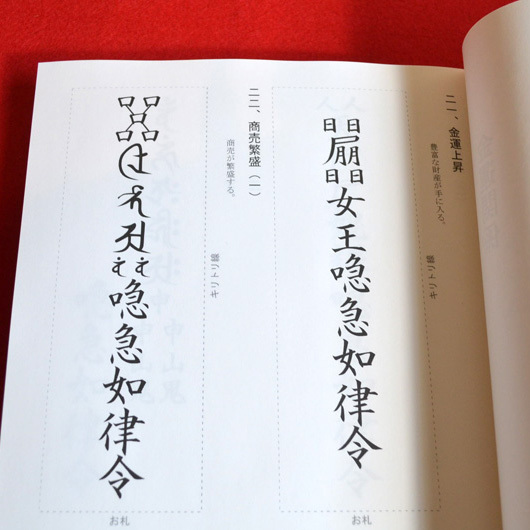 二一、金運上昇
豊富な財産が手に入る。
キリトリ線
女王喼急如律令
お札
二二、商売繁盛(一)
商売が繁盛する。
キリトリ線
喼急如律令
お札